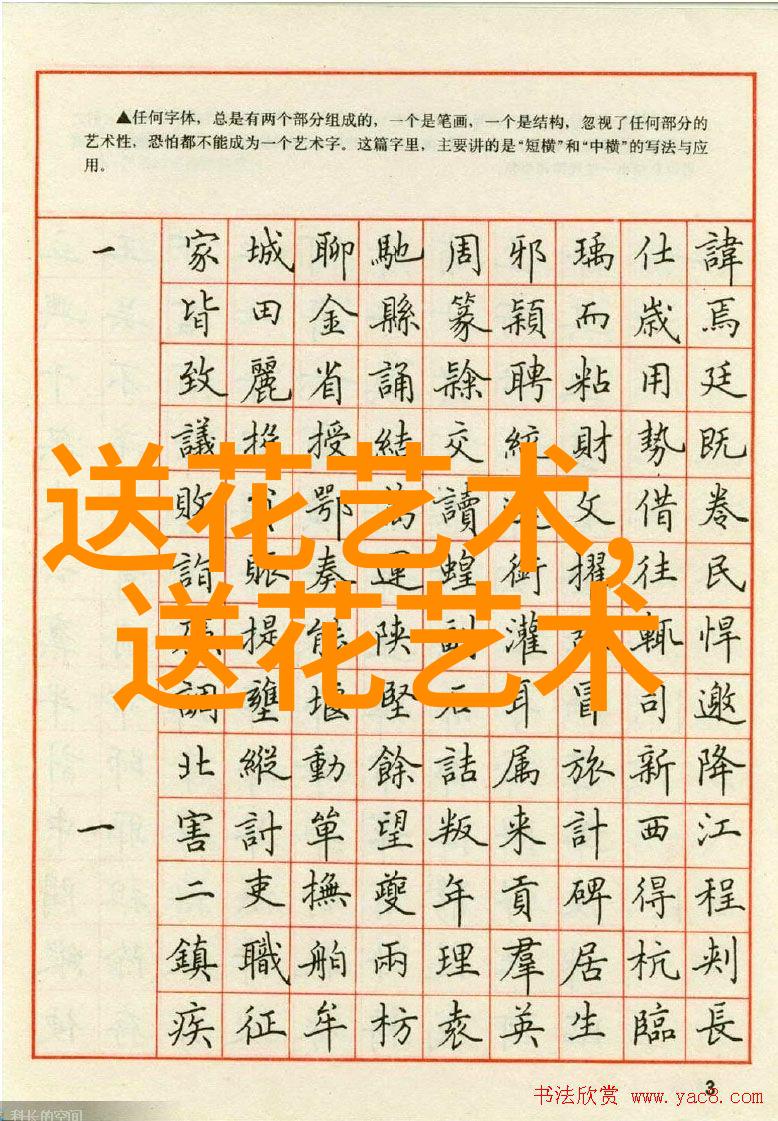 ▲任何字体，总是有两个部分组成的，一个是笔画，一个是结构，忽视了任何部分的
艺术性，恐怕都不能成为一个艺术字。这篇字里，主要讲的是“短横”和“中横”的写法与应
用。
一 家 城 聊 馳 周 邪 瑀 仕 諱
皆 田 金 縣 篆 穎 而 歲 焉
致 麗 省 誦 聘 粘 用 廷
議 授 結 交 統 財 勢 既
送花艺术,
敗 鄂 讀 文 借 卷
詣 賑 奏 運 蝗 衝 擢 往 民
送花艺术
提 能 陕 副 灌 輒 悍
調 壅 堰 堅 石 耳 冒 司 邀
北 縱 動 餘 詰 属 旅 新 降
一 害 討 單 望 叛 来 計 西 江
二 吏 撫 夔 年 貢 碑 得 程
鎮 職 舶 兩 理 羣 居 杭 刺
疾 征 牟 枋 袁 英 生 臨 長
3
书法欣赏 www.yac8.com
科长的空间